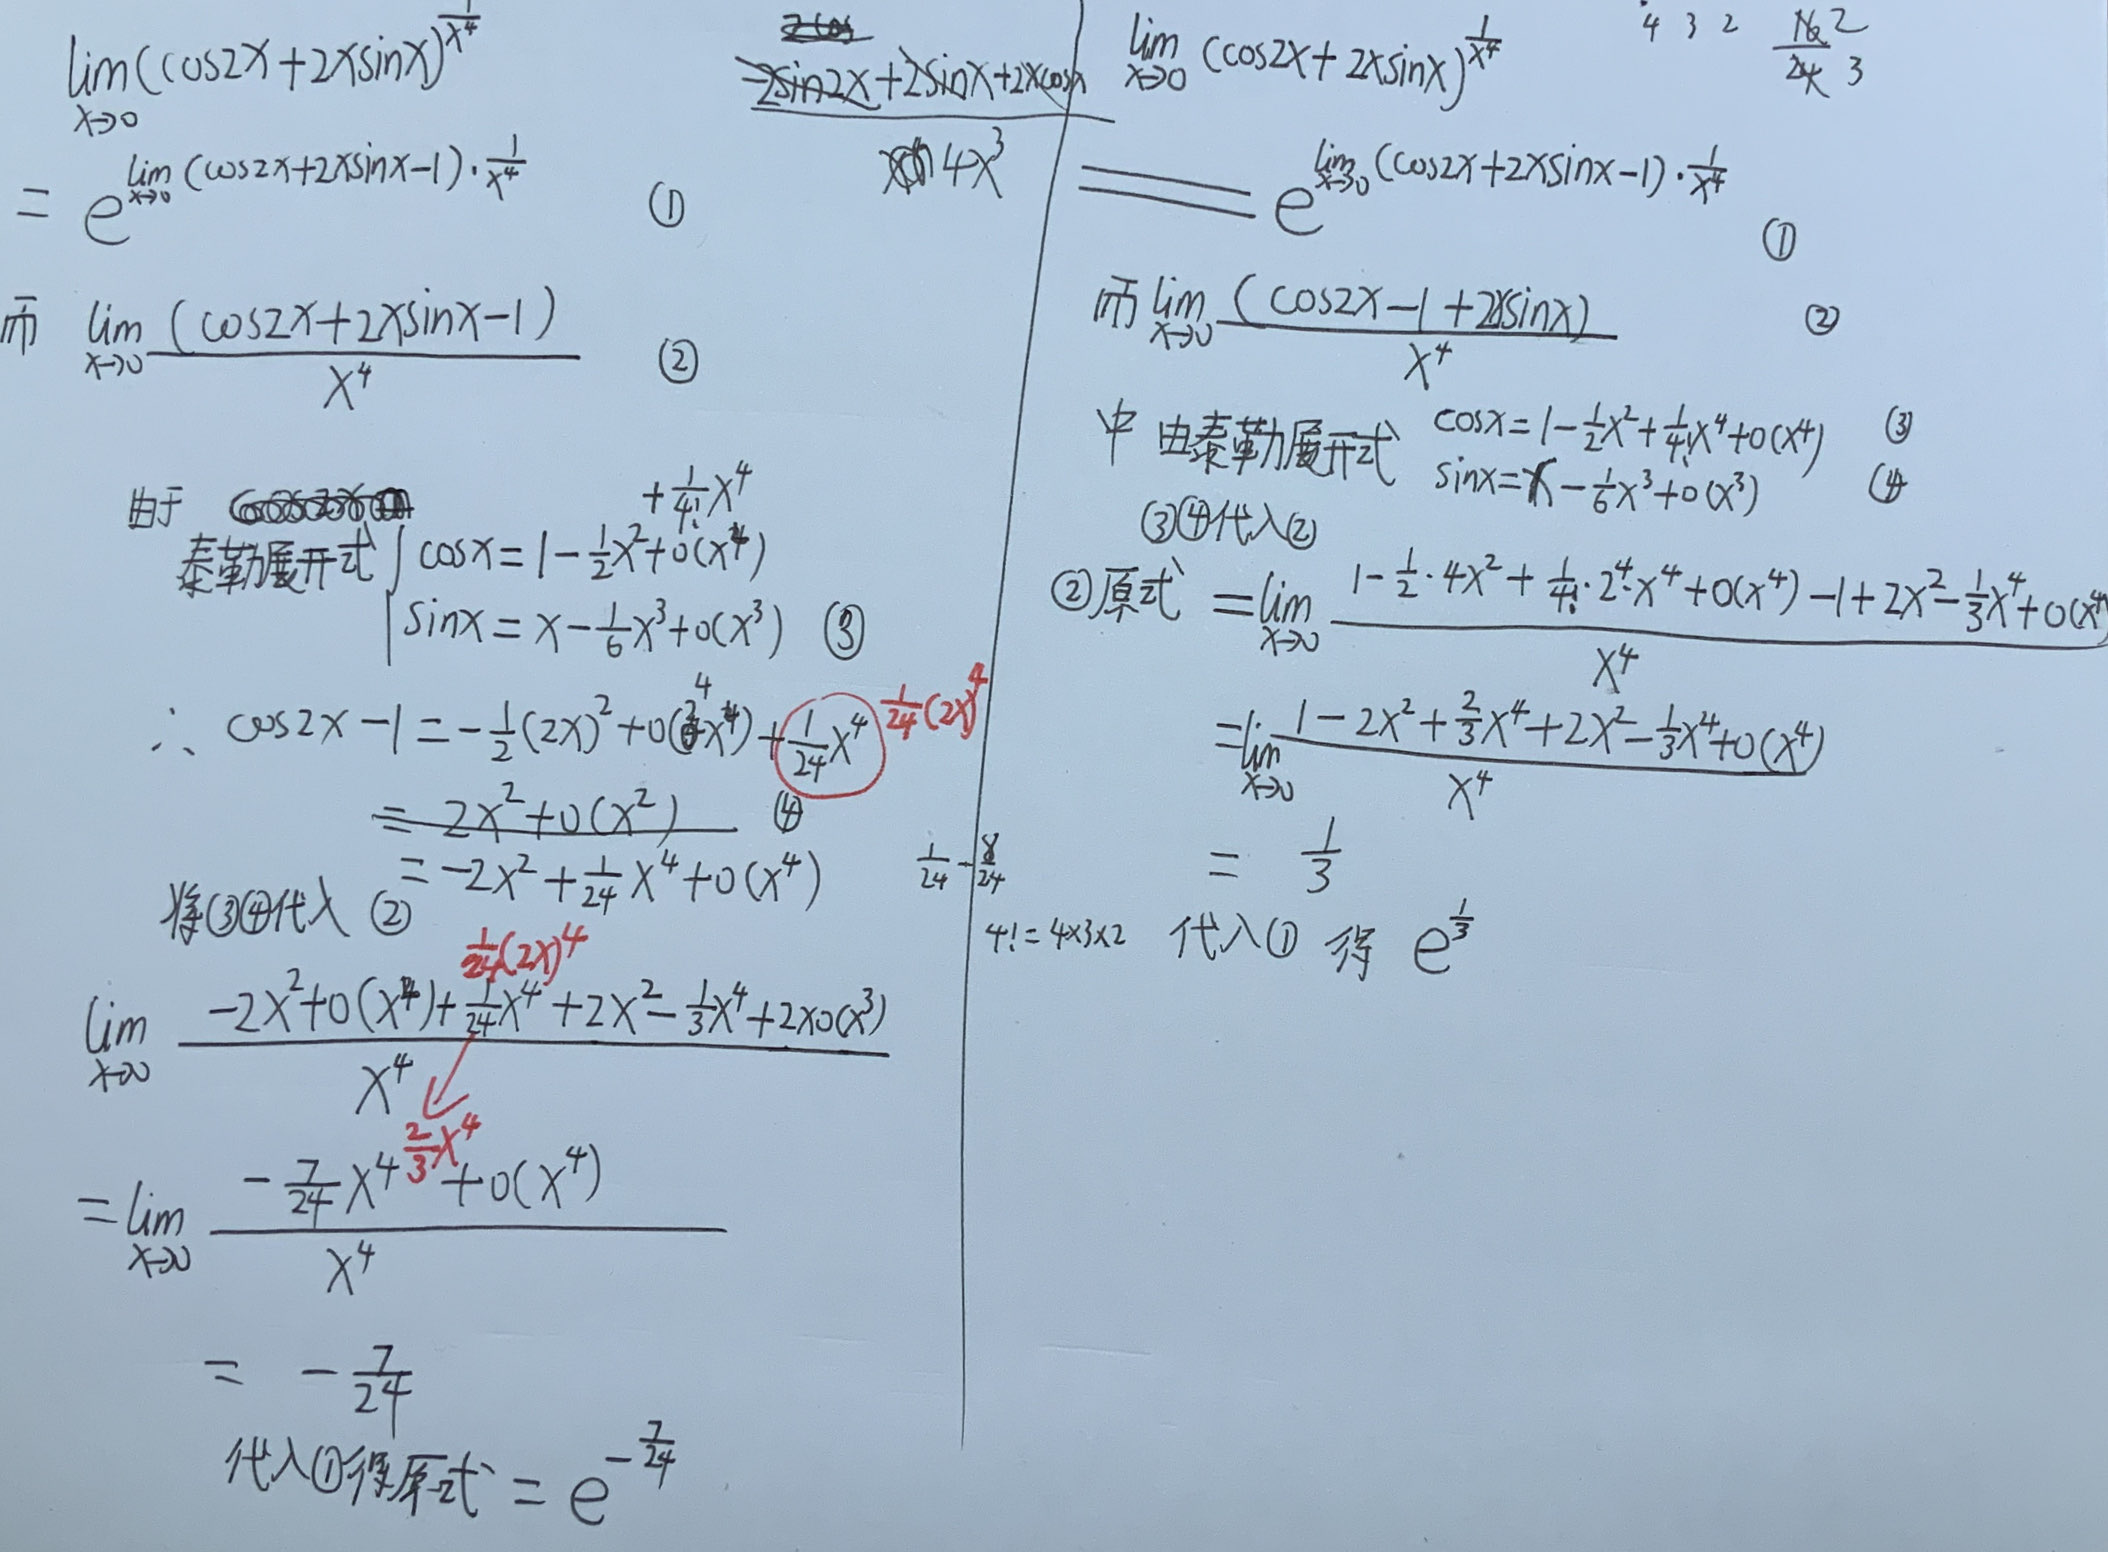 lim(cos2x+2xsinx)^{1/x^4}
x→0
= e^{lim_{x→0}(cos2x+2xsinx-1)·1/x^4} ①
而 lim_{x→0} (cos2x+2xsinx-1)/x^4 ②
由于
泰勒展开式 { cosx=1-1/2x^2+o(x^4) +1/4!x^4
sinx=x-1/6x^3+o(x^3) ③
∴ cos2x-1=-1/2(2x)^2+o(x^4)+1/24x^4 1/24(2x)^4
=2x^2+o(x^2) ④
=-2x^2+1/24x^4+o(x^4)
将③④代入②
1/24(2x)^4
lim_{x→0} (-2x^2+o(x^4)+1/24x^4+2x^2-1/3x^4+2xo(x^3))/x^4
2/3x^4
=lim_{x→0} (-7/24x^4+o(x^4))/x^4
= -7/24
代入①得原式=e^{-7/24}
2cos
-2sin2x+2sinx+2xcosx
4x^3
1/24-8/24
4!=4×3×2
lim_{x→0}(cos2x+2xsinx)^{1/x^4}
4 3 2 16/24 2 3
= e^{lim_{x→0}(cos2x+2xsinx-1)·1/x^4} ①
而 lim_{x→0} (cos2x-1+2xsinx)/x^4 ②
中 由泰勒展开式 cosx=1-1/2x^2+1/4!x^4+o(x^4) ③
sinx=x-1/6x^3+o(x^3) ④
③④代入②
②原式=lim_{x→0} (1-1/2·4x^2+1/4!·2^4·x^4+o(x^4)-1+2x^2-1/3x^4+o(x^4))/x^4
=lim_{x→0} (1-2x^2+2/3x^4+2x^2-1/3x^4+o(x^4))/x^4
= 1/3
代入① 得 e^{1/3}